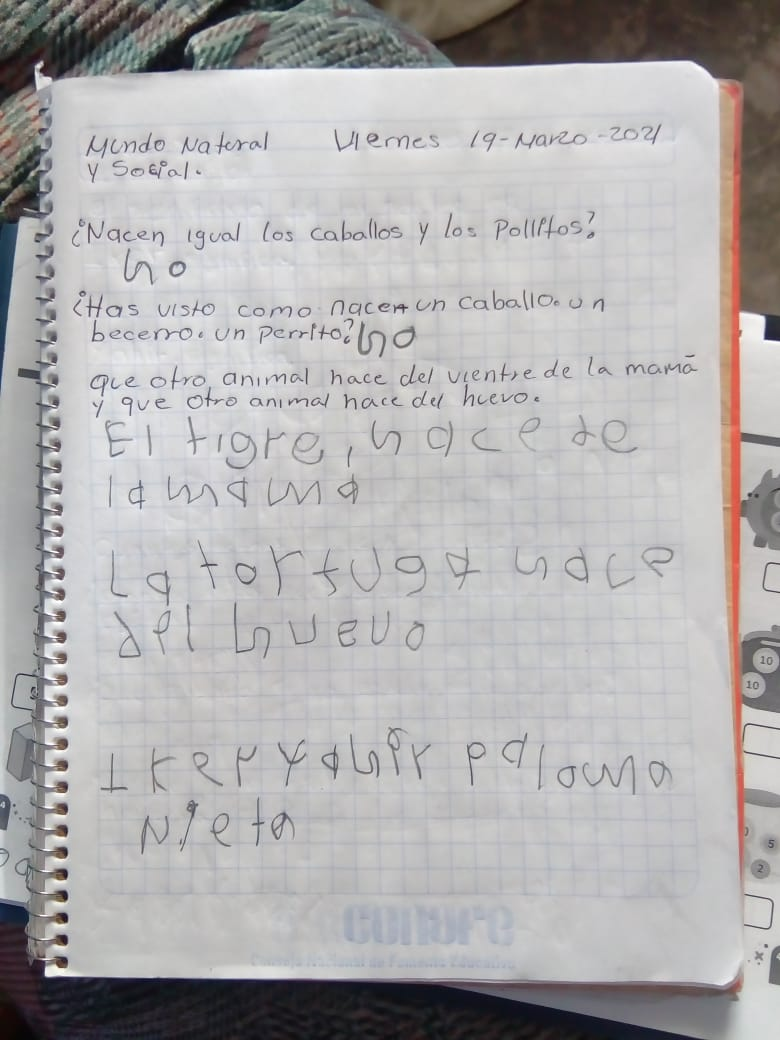 Mundo Natural Viernes 19-Marzo-2021
y Social.
¿Nacen igual los caballos y los Pollitos?
no
¿Has visto como nacen un caballo. un
becerro. un perrito? no
que otro animal nace del vientre de la mamá
y que otro animal nace del huevo.
El tigre, nace de
la mama
La tortuga nace
del huevo
Iker Yahir paloma
Nieta
conafe
Consejo Nacional de Fomento Educativo
10
10
5
2